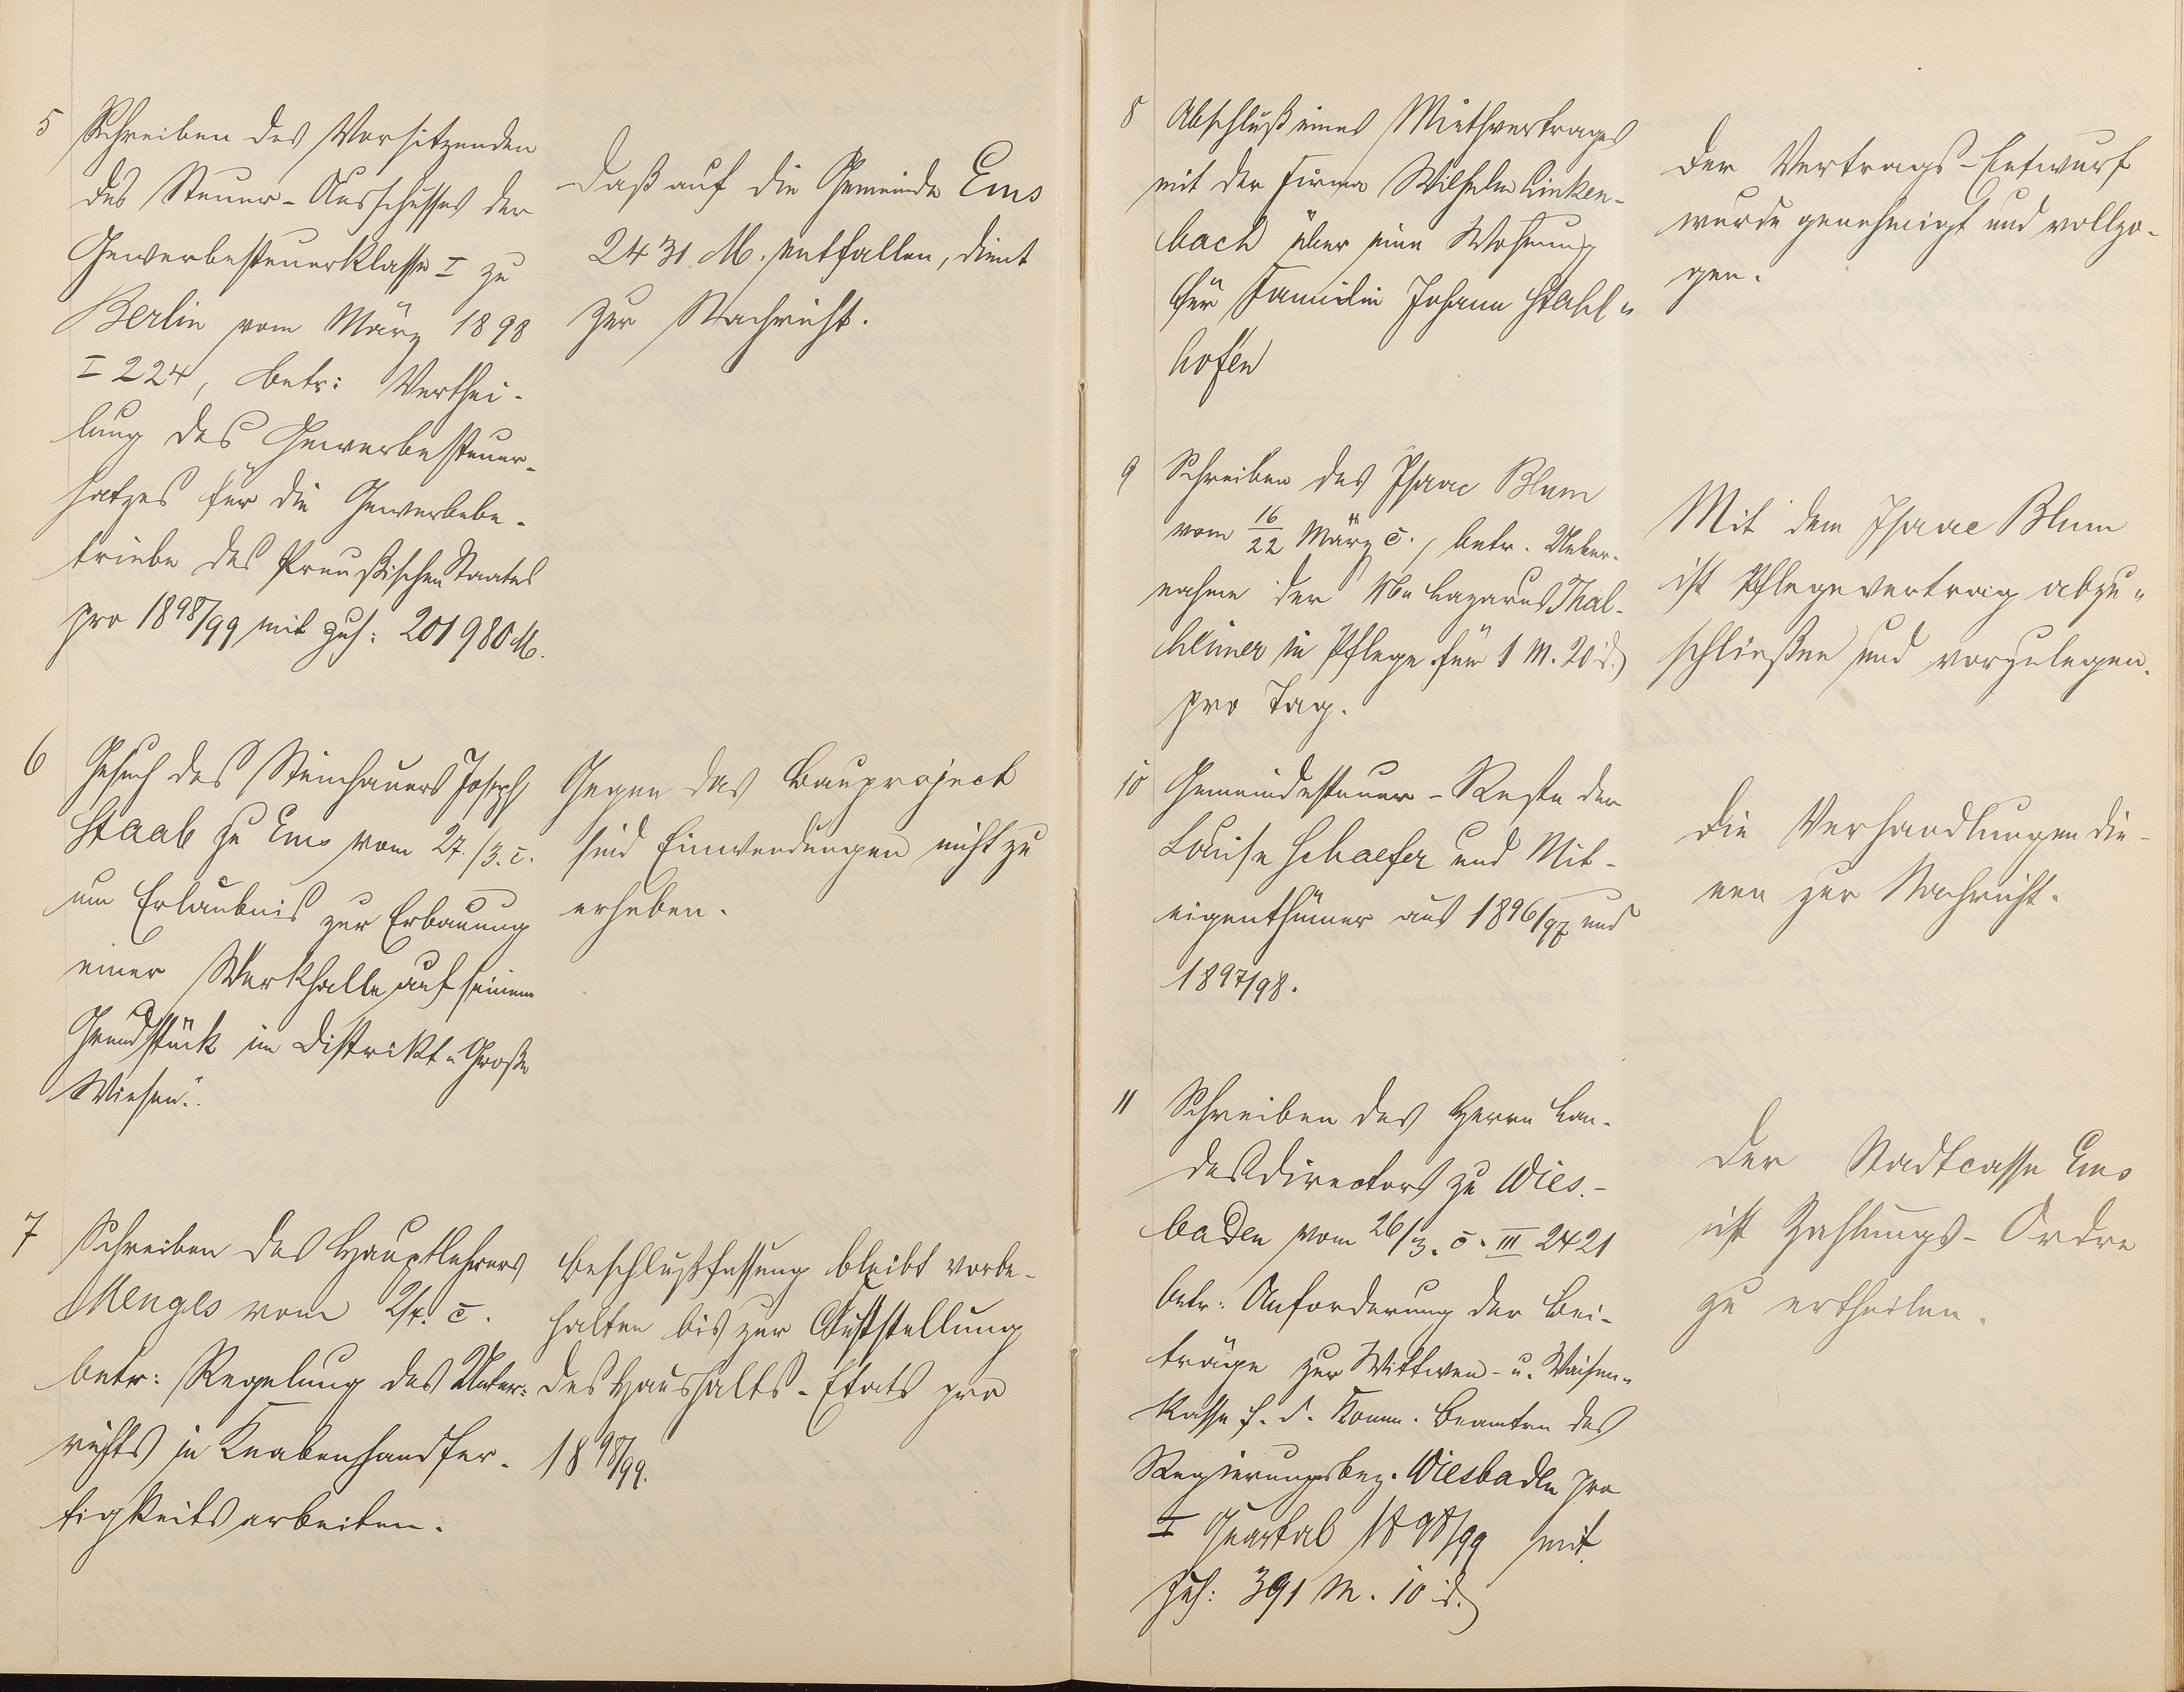 5 Schreiben des Vorsitzenden
des Steuer-Ausschusses der
Gewerbesteuerklasse I zu
Berlin vom März 1898
I 224, betr: Verthei-
lung des Gewerbesteuer-
satzes für die Gewerbebe-
triebe des Preußischen Staates
pro 1898/99 mit zus: 201980 M.
Daß auf die Gemeinde Ems
2431 M. entfallen, dient
zur Nachricht.
6 Gesuch des Steinhauers Joseph
Staab zu Ems vom 27./3. c.
um Erlaubnis zur Erbauung
einer Werkhalle auf seinem
Grundstück im Distrikt "Große
Wiesen".
Gegen das Bauproject
sind Einwendungen nicht zu
erheben.
7 Schreiben des Hauptlehrers
Menges vom c.
betr: Regelung des Unter-
richts in Knabenhandfer-
tigkeitsarbeiten.
Beschlußfassung bleibt vorbe-
halten bis zur Feststellung
des Haushalts-Etats pro
1898/99.
8 Abschluß eines Miethvertrages
mit der Firma Wilhelm Linken-
bach über eine Wohnung
für Familie Johann Stahl-
hofen
Der Vertrags-Entwurf
wurde genehmigt und vollzo-
gen.
9 Schreiben des Isaac Blum
vom 16/22 März c., betr. Ueber-
nahme der Lazarus Thal-
heimer in Pflege für 1 M. 20 d.
pro Tag.
Mit dem Isaac Blum
ist Pflegevertrag abzu-
schließen und vorzulegen.
10 Gemeindesteuer-Reste der
Louise Schaefer und Mit-
eigenthümer aus 1896/97 und
1897/98.
Die Verhandlungen die-
nen zur Nachricht.
11 Schreiben des Herrn Lan-
desdirectors zu Wies-
baden vom 26/3. c. III 2421
betr: Anforderung der Bei-
träge zur Wittwen- u. Waisen-
kasse f. d. Komm. Beamten des
Regierungsbez. Wiesbaden pro
I Quartal 1898/99 mit
zus: 391 M. 10 d.
Der Stadtcasse Ems
ist Zahlungs-Ordre
zu ertheilen.